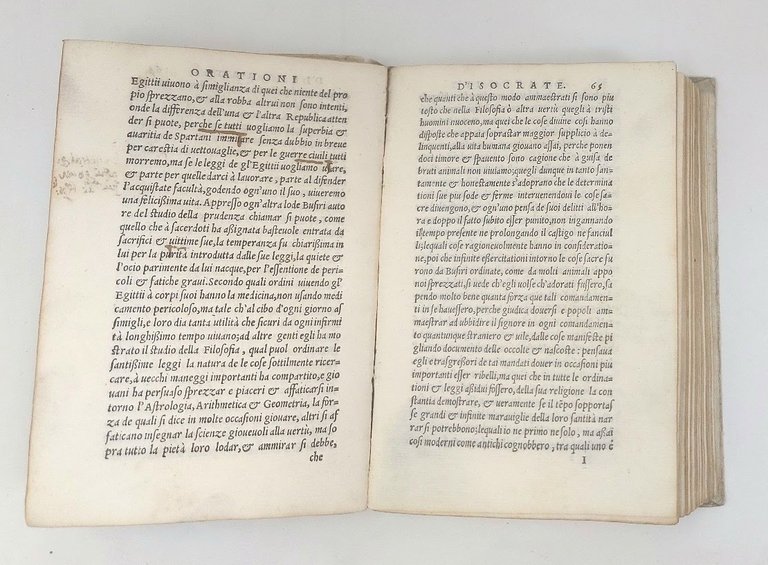 ORATIONI
Egittii uiuono à simiglianza di quei che niente del pro
pio sprezzano, & alla robba altrui non sono intenti,
onde la differenza dell'una & l'altra Republica atten
der si puote, perche se tutti uogliamo la superbia &
auaritia de Spartani immitare senza dubbio in breue
per carestia di uettouaglie, & per le guerre ciuili tutti
morremo, ma se le leggi de gl'Egittii uogliamo usare,
& parte per quelle darci à lauorare, parte al difender
l'acquistate facultà, godendo ogn'uno il suo, uiueremo
una felicissima uita. Appresso ogn'altra lode Busiri auto
re del studio della prudenza chiamar si puote, come
quello che a sacerdoti ha asignata basteuole entrata da
sacrifici & uittime sue, la temperanza su chiarissima in
lor per la purità introdutta dalle sue leggi, la quiete &
l'ocio parimente da lui nacque, per l'essentione de peri-
coli & fatiche graui. Secondo quali ordini uiuendo gl'
Egittii à corpi suoi hanno la medicina, non usando medi
camento pericoloso, ma tale ch'al cibo d'ogni giorno as
simigli, e loro dia tanta utilità che sicuri da ogni infirmi
tà longhissimo tempo uiuano; ad altre genti egli ha mo
strato il studio della Filosofia, qual puol ordinare le
santissime leggi la natura de le cose sottilmente ricer-
care, à uecchi maneggi importanti ha compartito, e gio
uani ha persuaso sprezzar e piaceri & affaticarsi in-
torno l'Astrologia, Arithmetica & Geometria, la for-
za de quali si dice in molte occasioni giouare, altri si af
faticano insegnar la scienze gioueuoli alla uertù, ma so
pra tutto la pietà loro lodar, & ammirar si debbe,
che
D'ISOCRATE. 65
che quanti che à questo modo ammaestrati si sono piu
tosto che nella Filosofia ò altra uertù quegli à tristi
huomini nuoceno, ma quei che le cose diuine cosi hanno
disposte che appaia soprastar maggior supplicio à de-
linquenti, alla uita humana giouano assai, perche ponen
doci timore & spauento sono cagione che à guisa de
bruti animali non uiuiamo; quegli dunque in tanto san-
tamente & honestamente s'adoprano che le determina
tioni sue piu sode & ferme interuenendoui le cose sa-
cre diuengono, & ogn'uno pensa de suoi delitti all'ho-
ra e doppo il fatto subito esser punito, non ingannando
il tempo presente ne prolongando il castigo ne fanciul
li; lequali cose ragioneuolmente hanno in consideratio-
ne, poi che infinite essercitationi intorno le cose sacre fu
rono da Busiri ordinate, come da molti animali appo
noi sprezzati, si uede ch'egli uolse ch'adorati fussero, sa
pendo molto bene quanta forza que tali comandamen-
ti in se hauessero, perche giudica douersi e popoli am-
maestrar ad ubbidire il signore in ogni comandamento
quantunque straniero & uile, dalle cose manifeste pi
gliando documento delle occolte & nascoste: pensaua
egli e trasgressori de tai mandati douer in occasioni piu
importanti esser ribelli, ma quei che in tutte le ordina-
tioni & leggi assidui fossero, della sua religione la con
stantia demostrare, & ueramente se il tẽpo sopportas
se grandi & infinite marauiglie della loro santità nar
rar si potrebbono; lequali io ne primo ne solo, ma assai
cosi moderni come antichi cognobbero, tra quali uno è
I